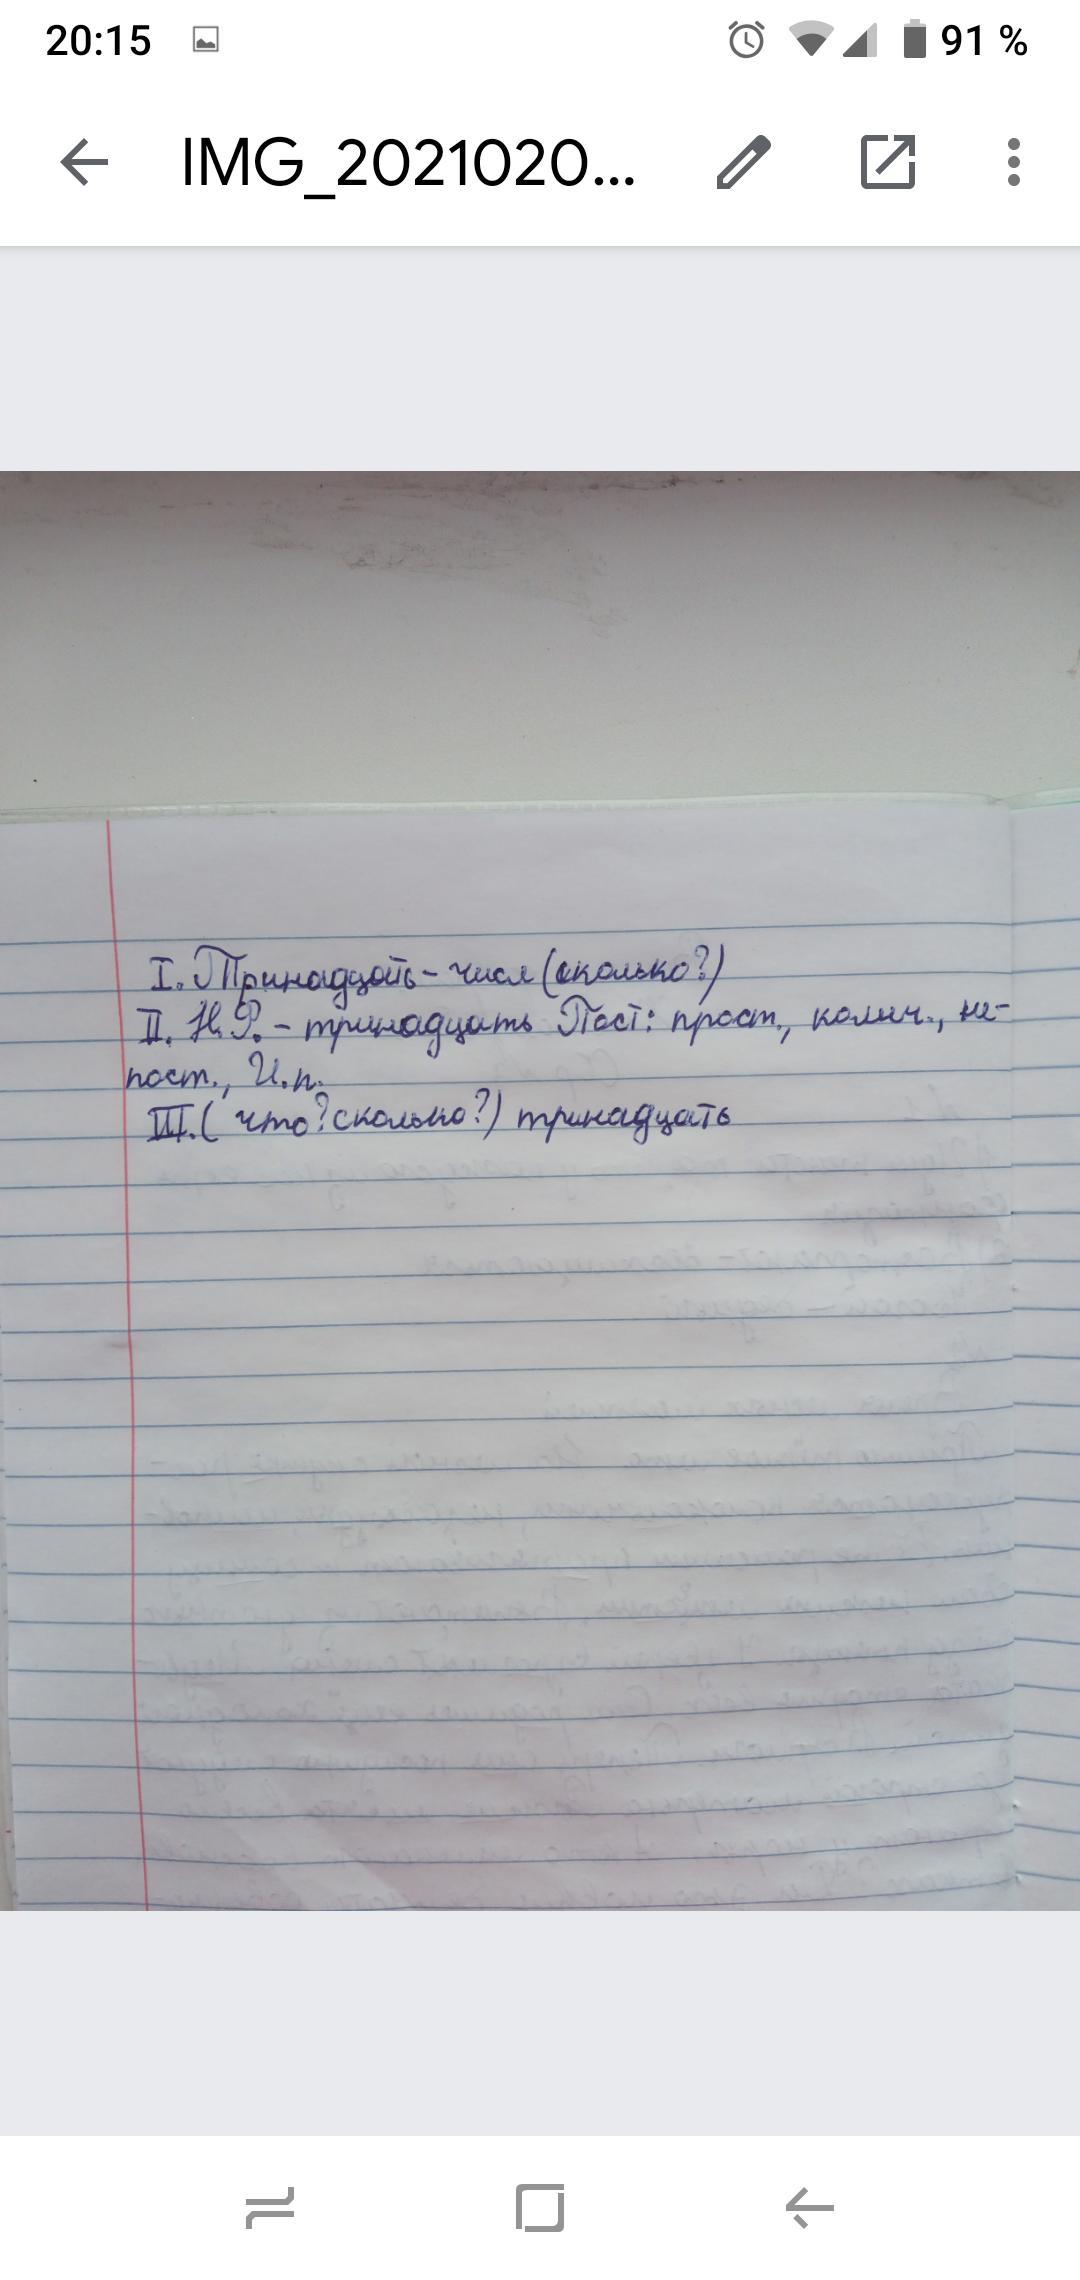 20:15 91 %
IMG_2021020...
I. Тринадцать - числ (сколько?)
II. Н.Р. - тринадцать Пост: прост., колич., не-
пост., И.п.
III. ( что? сколько?) тринадцать